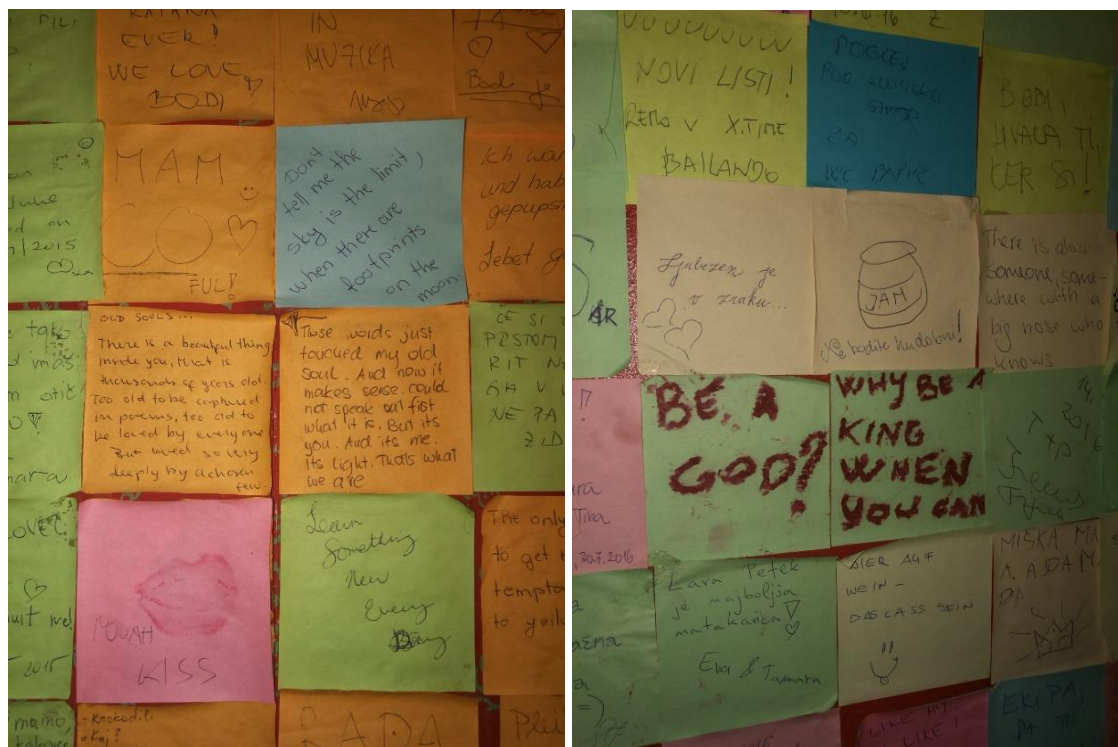 EVER!
WE LOVE
BODI
IN
MUZIKA
Bodi je
2015
MAM
CO
FUL!
Don't
tell me the
sky is the limit,
when there are
footprints
on the
moon
Ich war
und hab
gepupst
Lebet
OLD SOULS...
There is a beautiful thing
inside you, that is
thousands of years old.
Too old to be captured
in poems, too old to
be loved by everyone
But loved so very
deeply by a chosen
few.
Those words just
touched my old
soul. And now it
makes sense. could
not speak out fist
what it is. But its
you. And its me.
its light. Thats what
we are
ČE SI
NE
ZID
MOUAH
KISS
Learn
Something
New
Every
Day
The only
to get
tempta
to yeild
2015
- Krokodil
NOVI LISTI!
RETRO V X.TIME
BAILANDO
POGLEJ
POD
ZA
WC
BODI,
HVALA TI,
KER SI!
Ljubezen je
v zraku...
JAM
Ne bodite hudobni!
There is
someone, some-
where with a
big nose who
knows
BE A
GOD?
WHY BE A
KING
WHEN
YOU CAN
30.7.2016
Lara Petek
je najboljša
matakanca
Eva & Tamara
BIER AUF
WEIN -
DAS LASS SEIN
MIŠKA MA
EKIPA,
LIKE MY
LIKE!